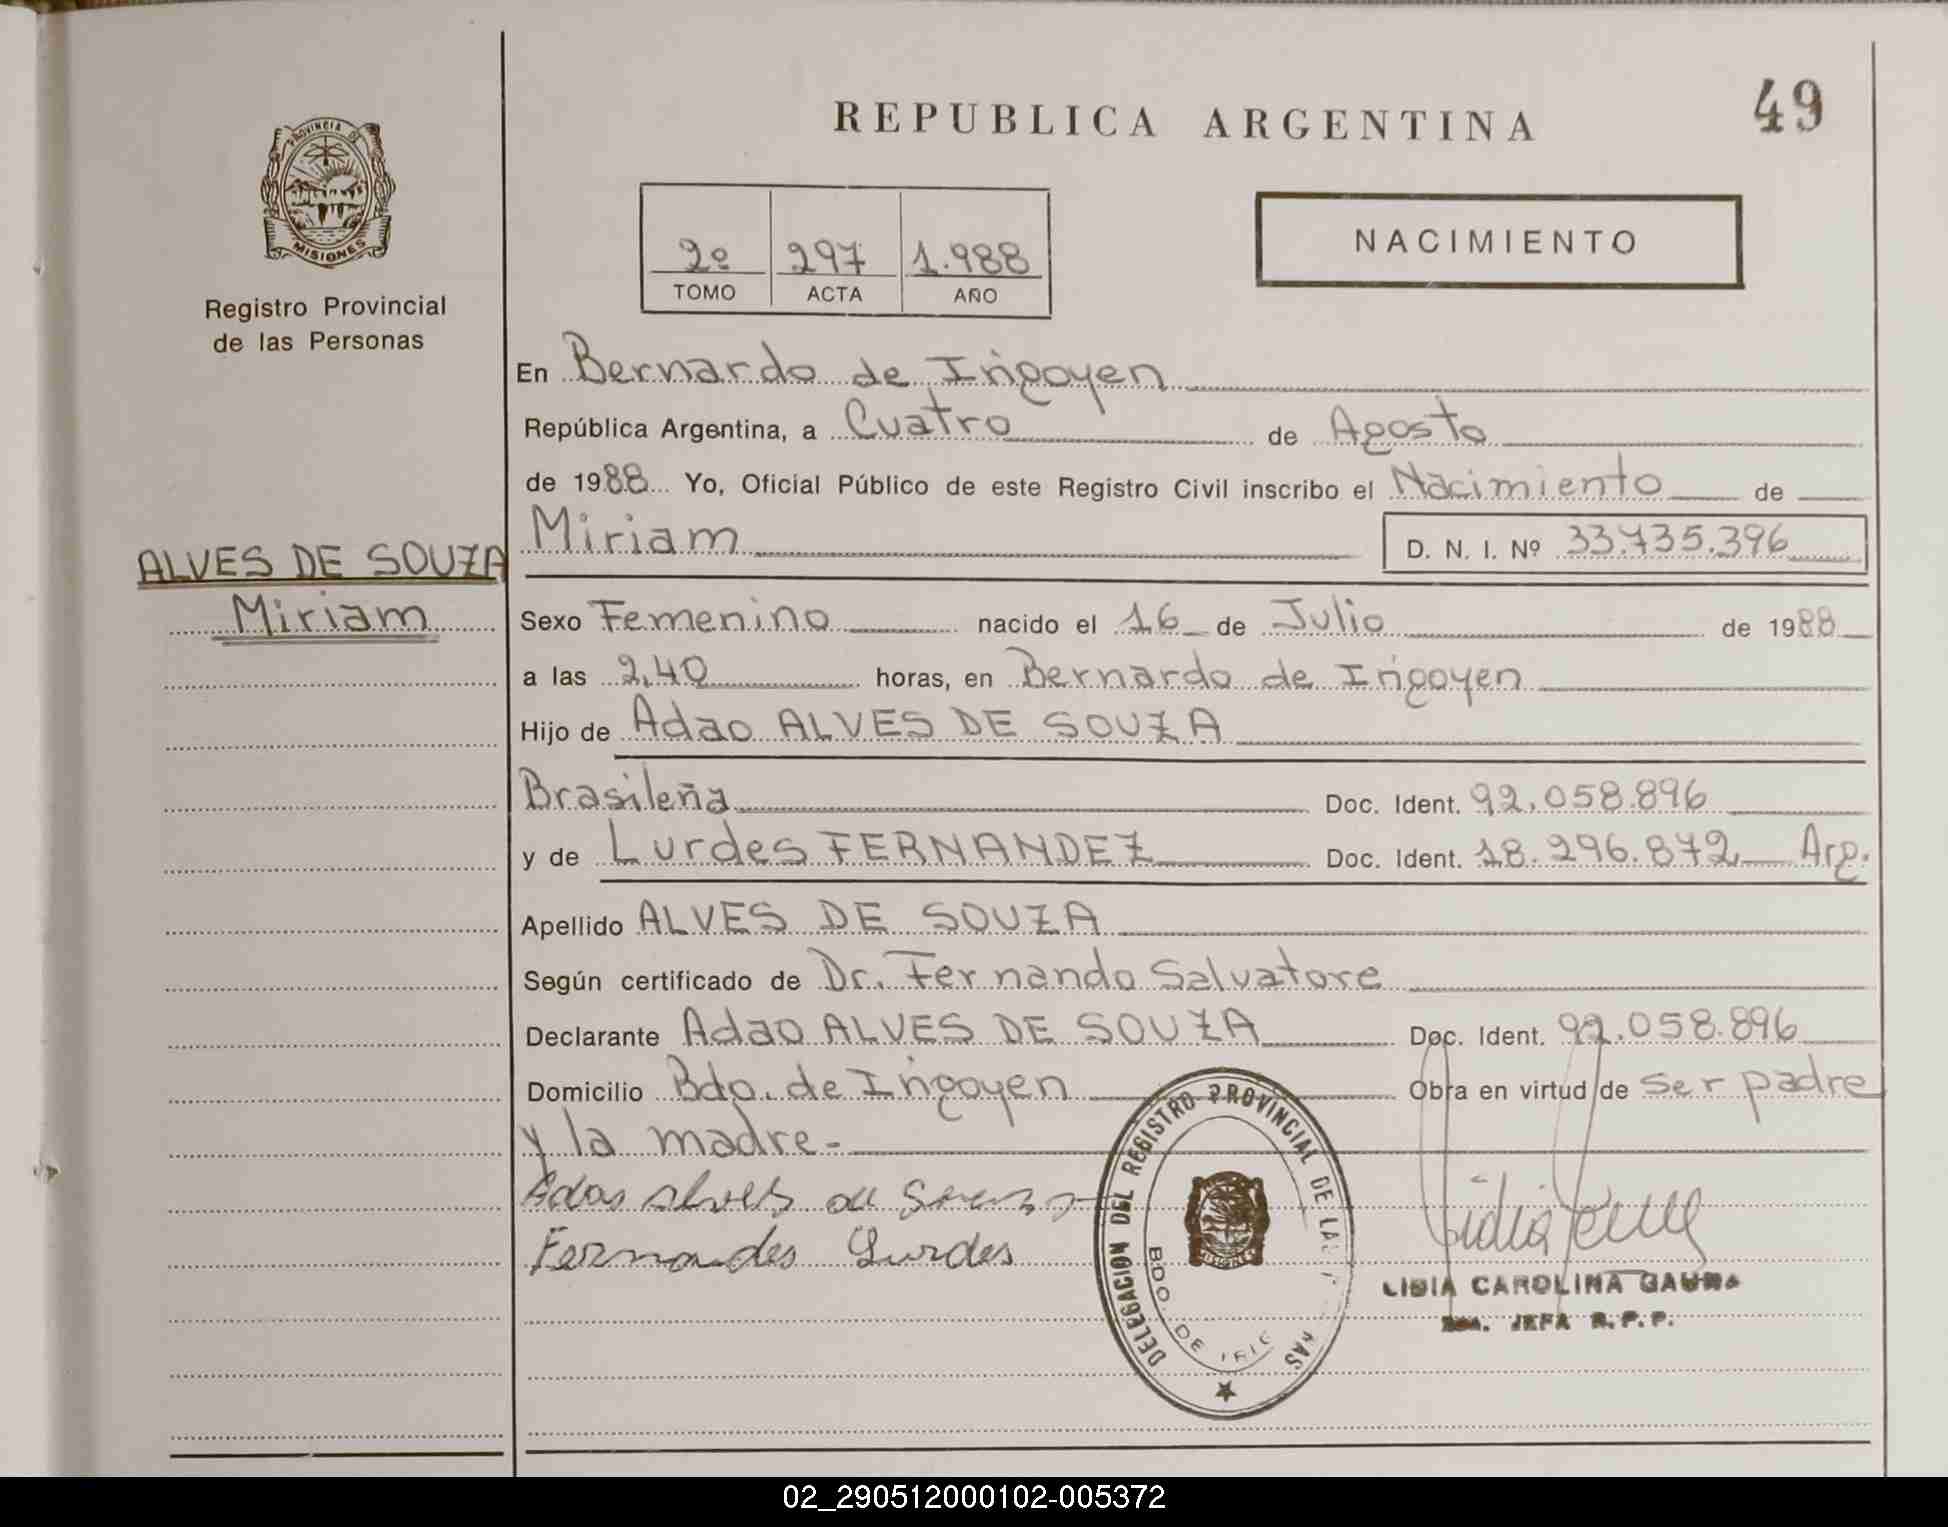 REPUBLICA ARGENTINA
49
PROVINCIA DE
MISIONES
Registro Provincial
de las Personas
2º 297 1.988
TOMO ACTA AÑO
NACIMIENTO
En Bernardo de Irigoyen
República Argentina, a Cuatro de Agosto
de 1988 Yo, Oficial Público de este Registro Civil inscribo el Nacimiento de
Miriam D. N. I. Nº 33.735.396
ALVES DE SOUZA
Miriam
Sexo Femenino nacido el 16 de Julio de 1988
a las 2,40 horas, en Bernardo de Irigoyen
Hijo de Adao ALVES DE SOUZA
Brasileña Doc. Ident. 92.058.896
y de Lurdes FERNANDEZ Doc. Ident. 18.296.872 Arg.
Apellido ALVES DE SOUZA
Según certificado de Dr. Fernando Salvatore
Declarante Adao ALVES DE SOUZA Doc. Ident. 92.058.896
Domicilio Bdo. de Irigoyen Obra en virtud de ser padre
y la madre-
Adao alves de Souza
Fernandes Lurdes
DELEGACION DEL REGISTRO PROVINCIAL DE LAS
BDO. DE IRIG
MISIONES
LIDIA CAROLINA GAUNA
JEFA R.P.P.
02_290512000102-005372